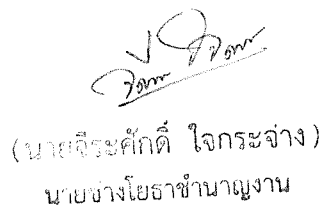 (นายจีระศักดิ์ ใจกระจ่าง)
นายช่างโยธาชำนาญงาน